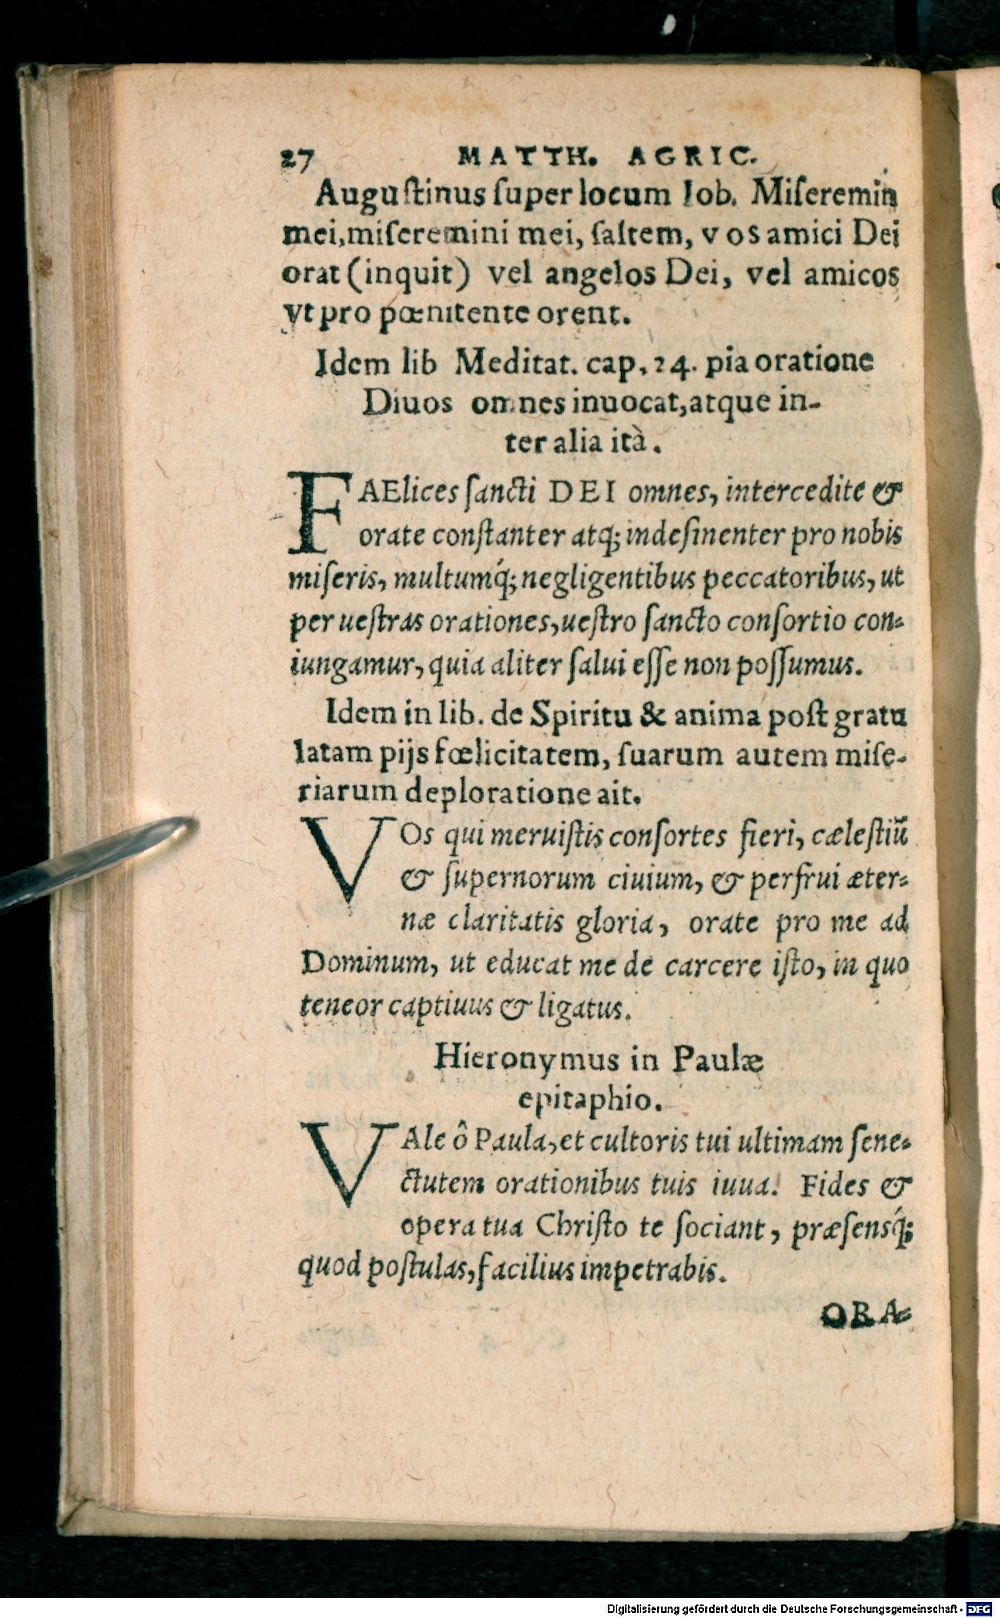 27 MATTH. AGRIC.
Augustinus super locum Iob. Miseremin
mei, miseremini mei, saltem, vos amici Dei
orat (inquit) vel angelos Dei, vel amicos
vt pro pœnitente orent.
Idem lib Meditat. cap. 24. pia oratione
Diuos omnes inuocat, atque in-
ter alia ità.
FAElices sancti DEI omnes, intercedite &
orate constanter atq; indesinenter pro nobis
miseris, multumq́; negligentibus peccatoribus, ut
per uestras orationes, uestro sancto consortio con-
iungamur, quia aliter salui esse non possumus.
Idem in lib. de Spiritu & anima post gratu
latam pijs fœlicitatem, suarum autem mise-
riarum deploratione ait.
VOs qui meruistis consortes fieri, cælestiũ
& supernorum ciuium, & perfrui æter-
næ claritatis gloria, orate pro me ad
Dominum, ut educat me de carcere isto, in quo
teneor captiuus & ligatus.
Hieronymus in Paulæ
epitaphio.
VAle ô Paula, et cultoris tui ultimam sene-
ctutem orationibus tuis iuua. Fides &
opera tua Christo te sociant, præsensq́;
quod postulas, facilius impetrabis.
ORA-
Digitalisierung gefördert durch die Deutsche Forschungsgemeinschaft - DFG